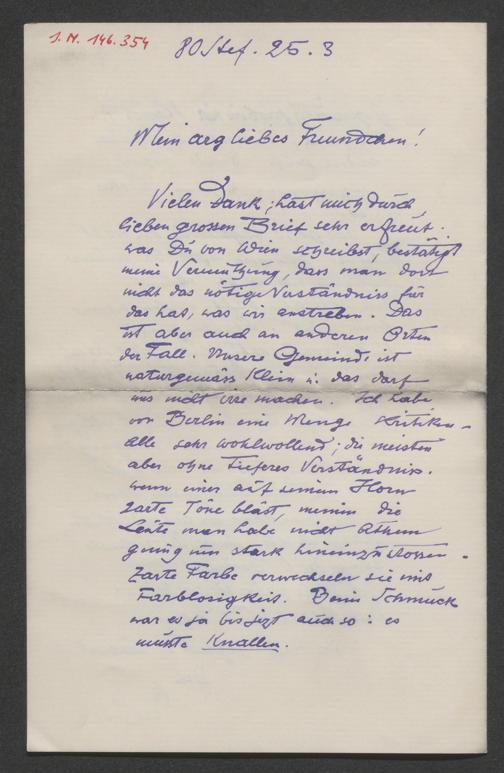 J.N. 146.354
80 Stef. 25.3
Mein arg liebes Freundchen!
Vielen Dank, hast mich durch
lieben grossen Brief sehr erfreut.
was Du von Wien schreibst, bestätigt
meine Vermuthung, dass man dort
nicht das nötige Verständniss für
das hat, was wir anstreben. Das
ist aber auch an anderen Orten
der Fall. Unsere Gemeinde ist
naturgemäss klein u. das darf
uns nicht irre machen. Ich habe
von Berlin eine Menge Kritiken -
alle sehr wohlwollend; die meisten
aber ohne tieferes Verständniss.
wenn einer auf seinem Horn
zarte Töne bläst, meinen die
Leute man habe nicht Athem
genug um stark hineinzustossen -
Zarte Farbe verwechseln sie mit
Farblosigkeit. Beim Schmuck
war es ja bis jezt auch so: es
musste Knallen.